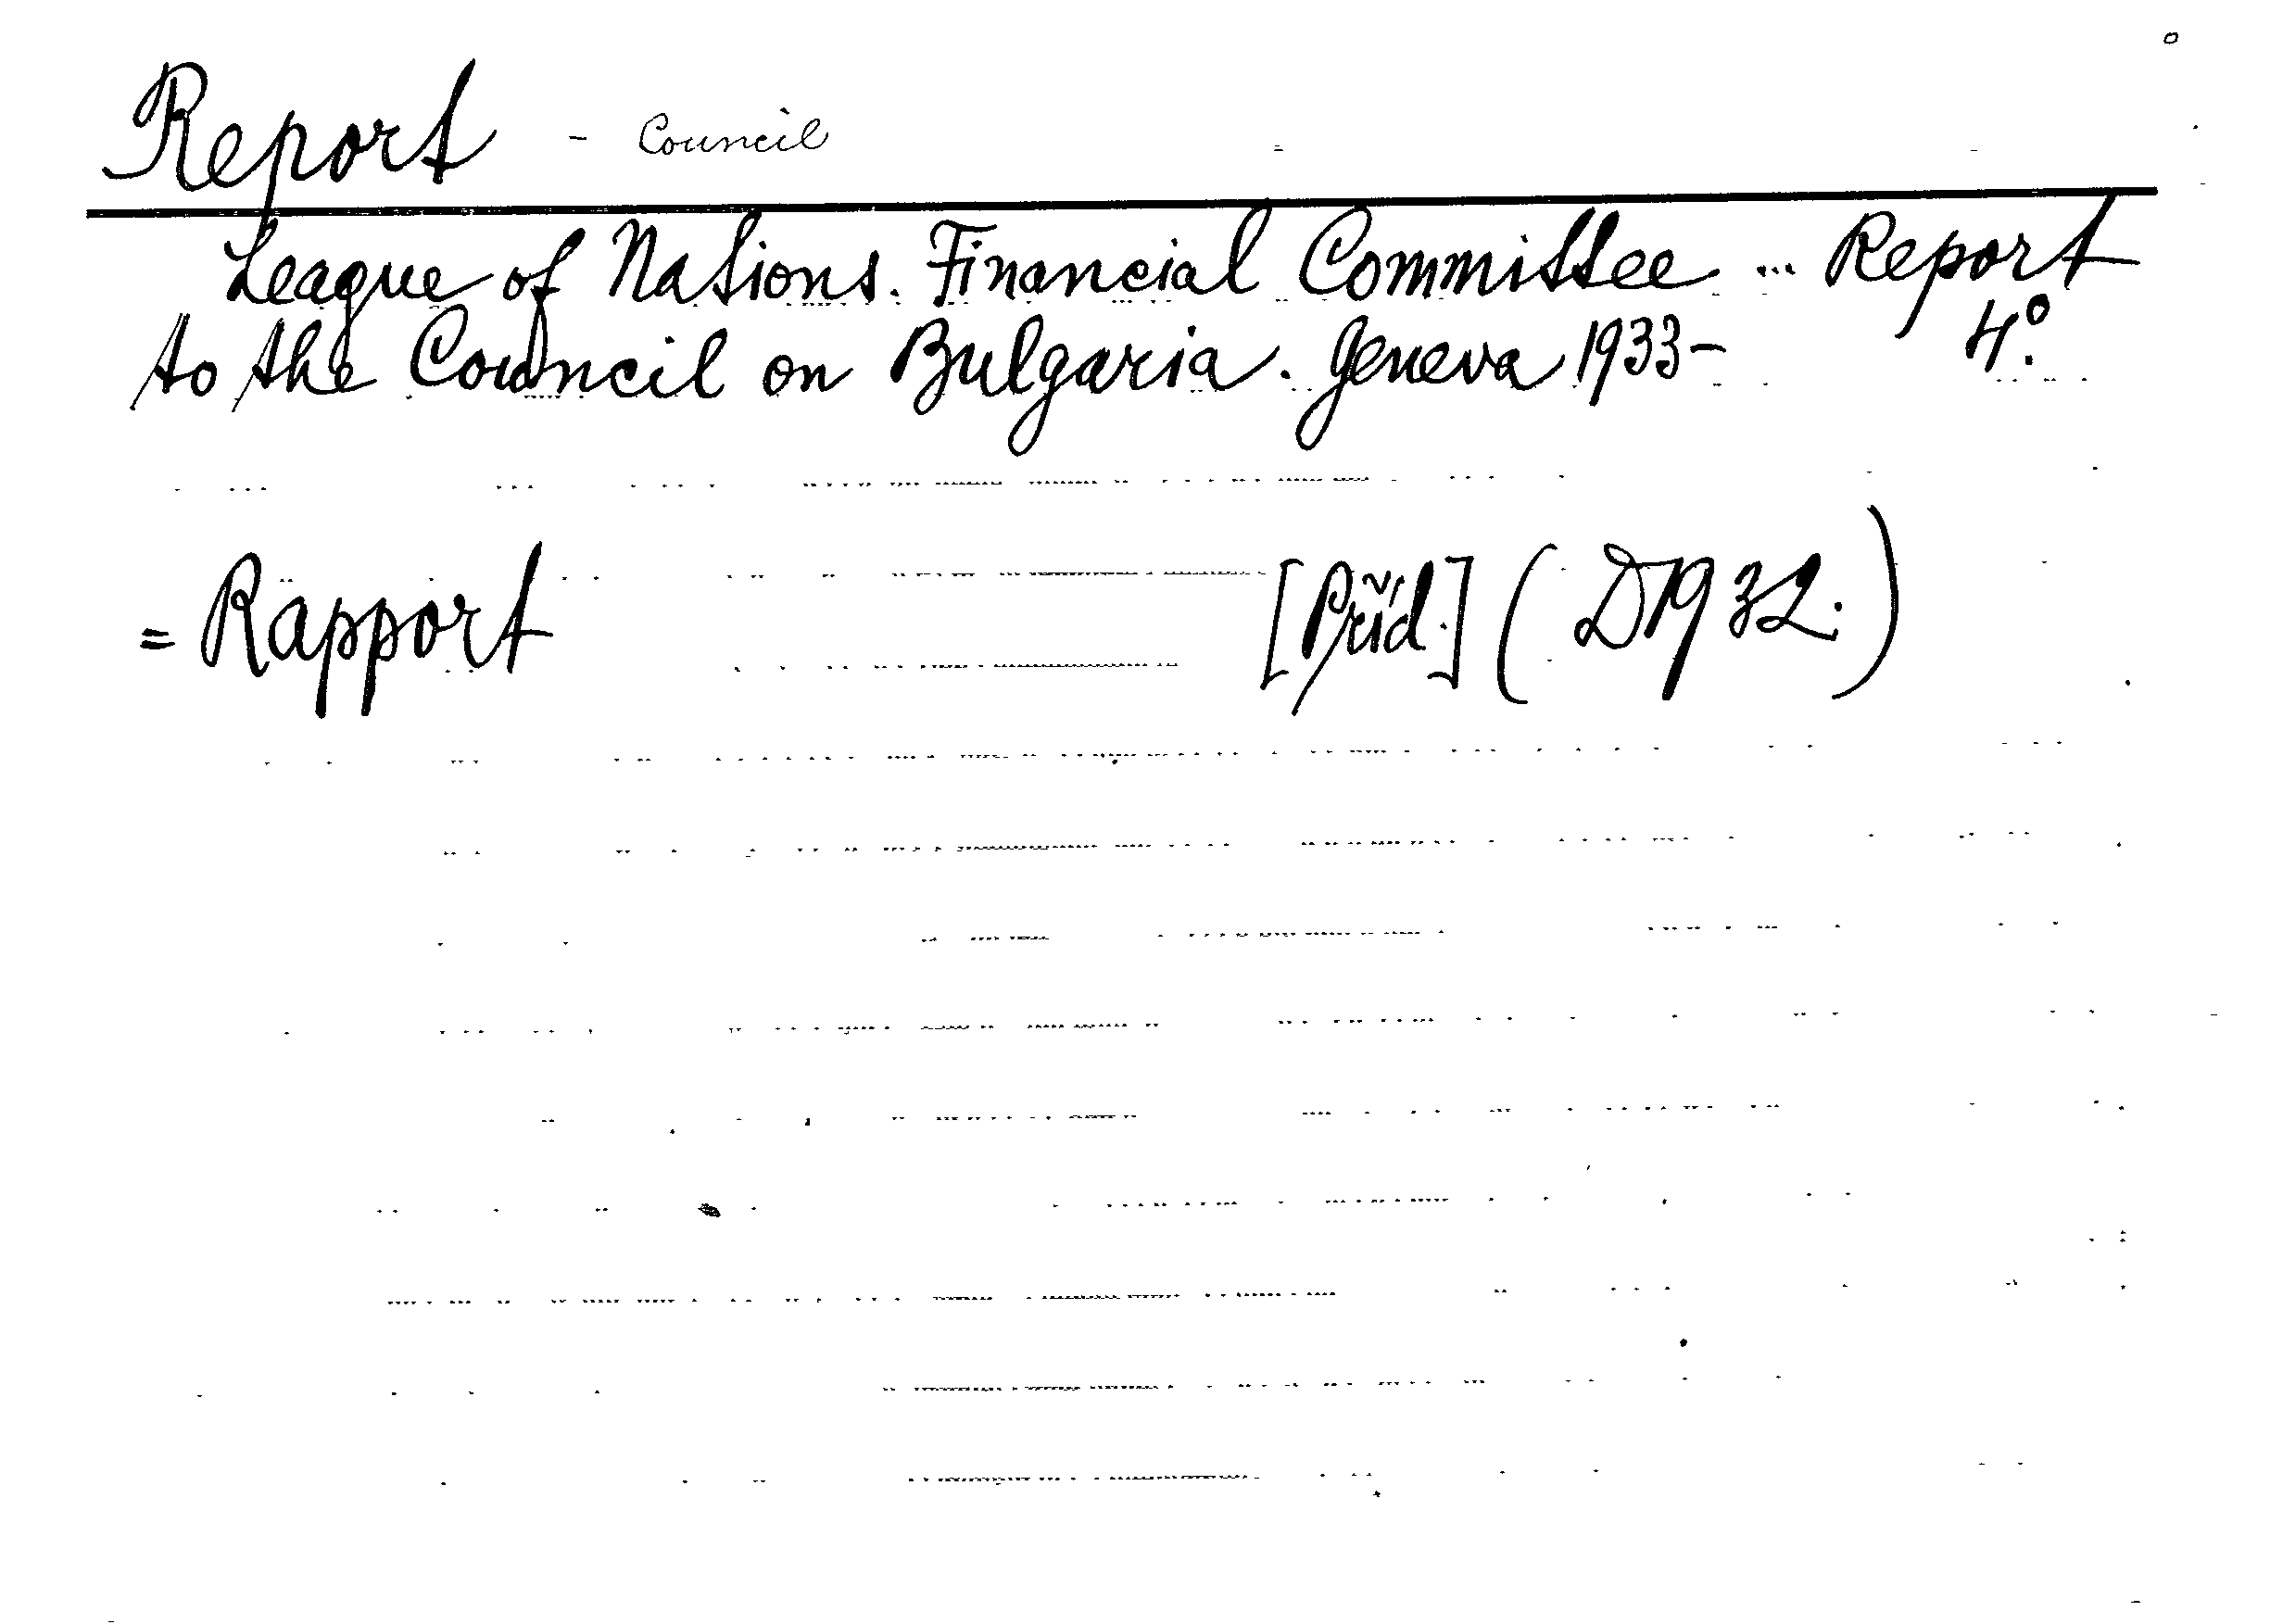 Report - Council
League of Nations. Financial Committee ... Report
to the Council on Bulgaria. Geneva 1933- 4°.
= Rapport [Příd.] (D1932.)